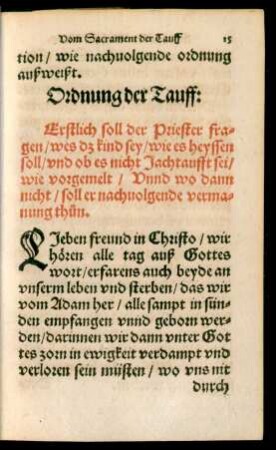 Vom Sacrament der Tauff 15
tion / wie nachuolgende ordnung
außweißt.
Ordnung der Tauff:
Erstlich soll der Priester fra-
gen / wes dz kind sey / wie es heyssen
soll / vnd ob es nicht Jachtaufft sei /
wie vorgemelt / Vnnd wo dann
nicht / soll er nachuolgende verma-
nung thůn.
LIeben freund in Christo / wir
hören alle tag auß Gottes
wort / erfarens auch beyde an
vnserm leben vnd sterben / das wir
vom Adam her / alle sampt in sün-
den empfangen vnnd geborn wer-
den / darinnen wir dann vnter Got
tes zorn in ewigkeit verdampt vnd
verloren sein müsten / wo vns nit
durch